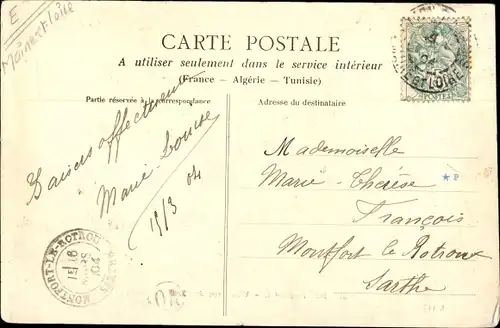 E
Maine et Loire
CARTE POSTALE
A utiliser seulement dans le service intérieur
(France - Algérie - Tunisie)
Partie réservée à la correspondance
Adresse du destinataire
Baisers affectueux
Marie-Louise
15/3 04
Mademoiselle
Marie-Thérèse
François
Montfort le Rotrou
Sarthe
MONTFORT-LE-ROTROU
04
ET LOIRE